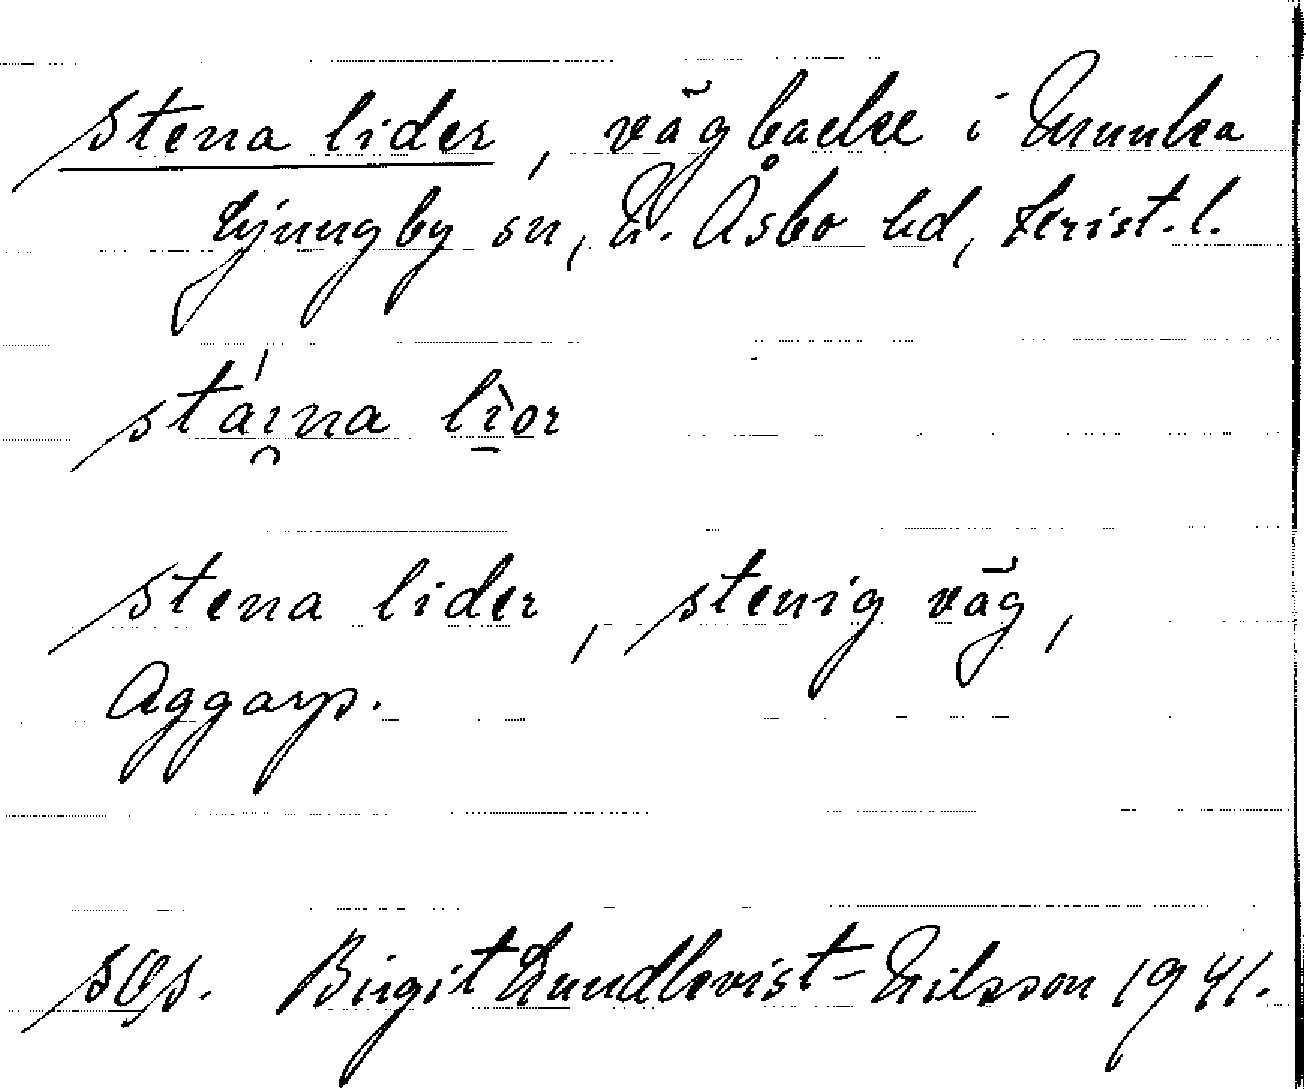 stena lider, väg backe i Munka
Ljungby sn, N. Åsbo hd, Krist. l.
stáı̯na lı̱̀or
stena lider, stenig väg,
Aggarp.
Birgit Lundkvist-Nilsson 1941.